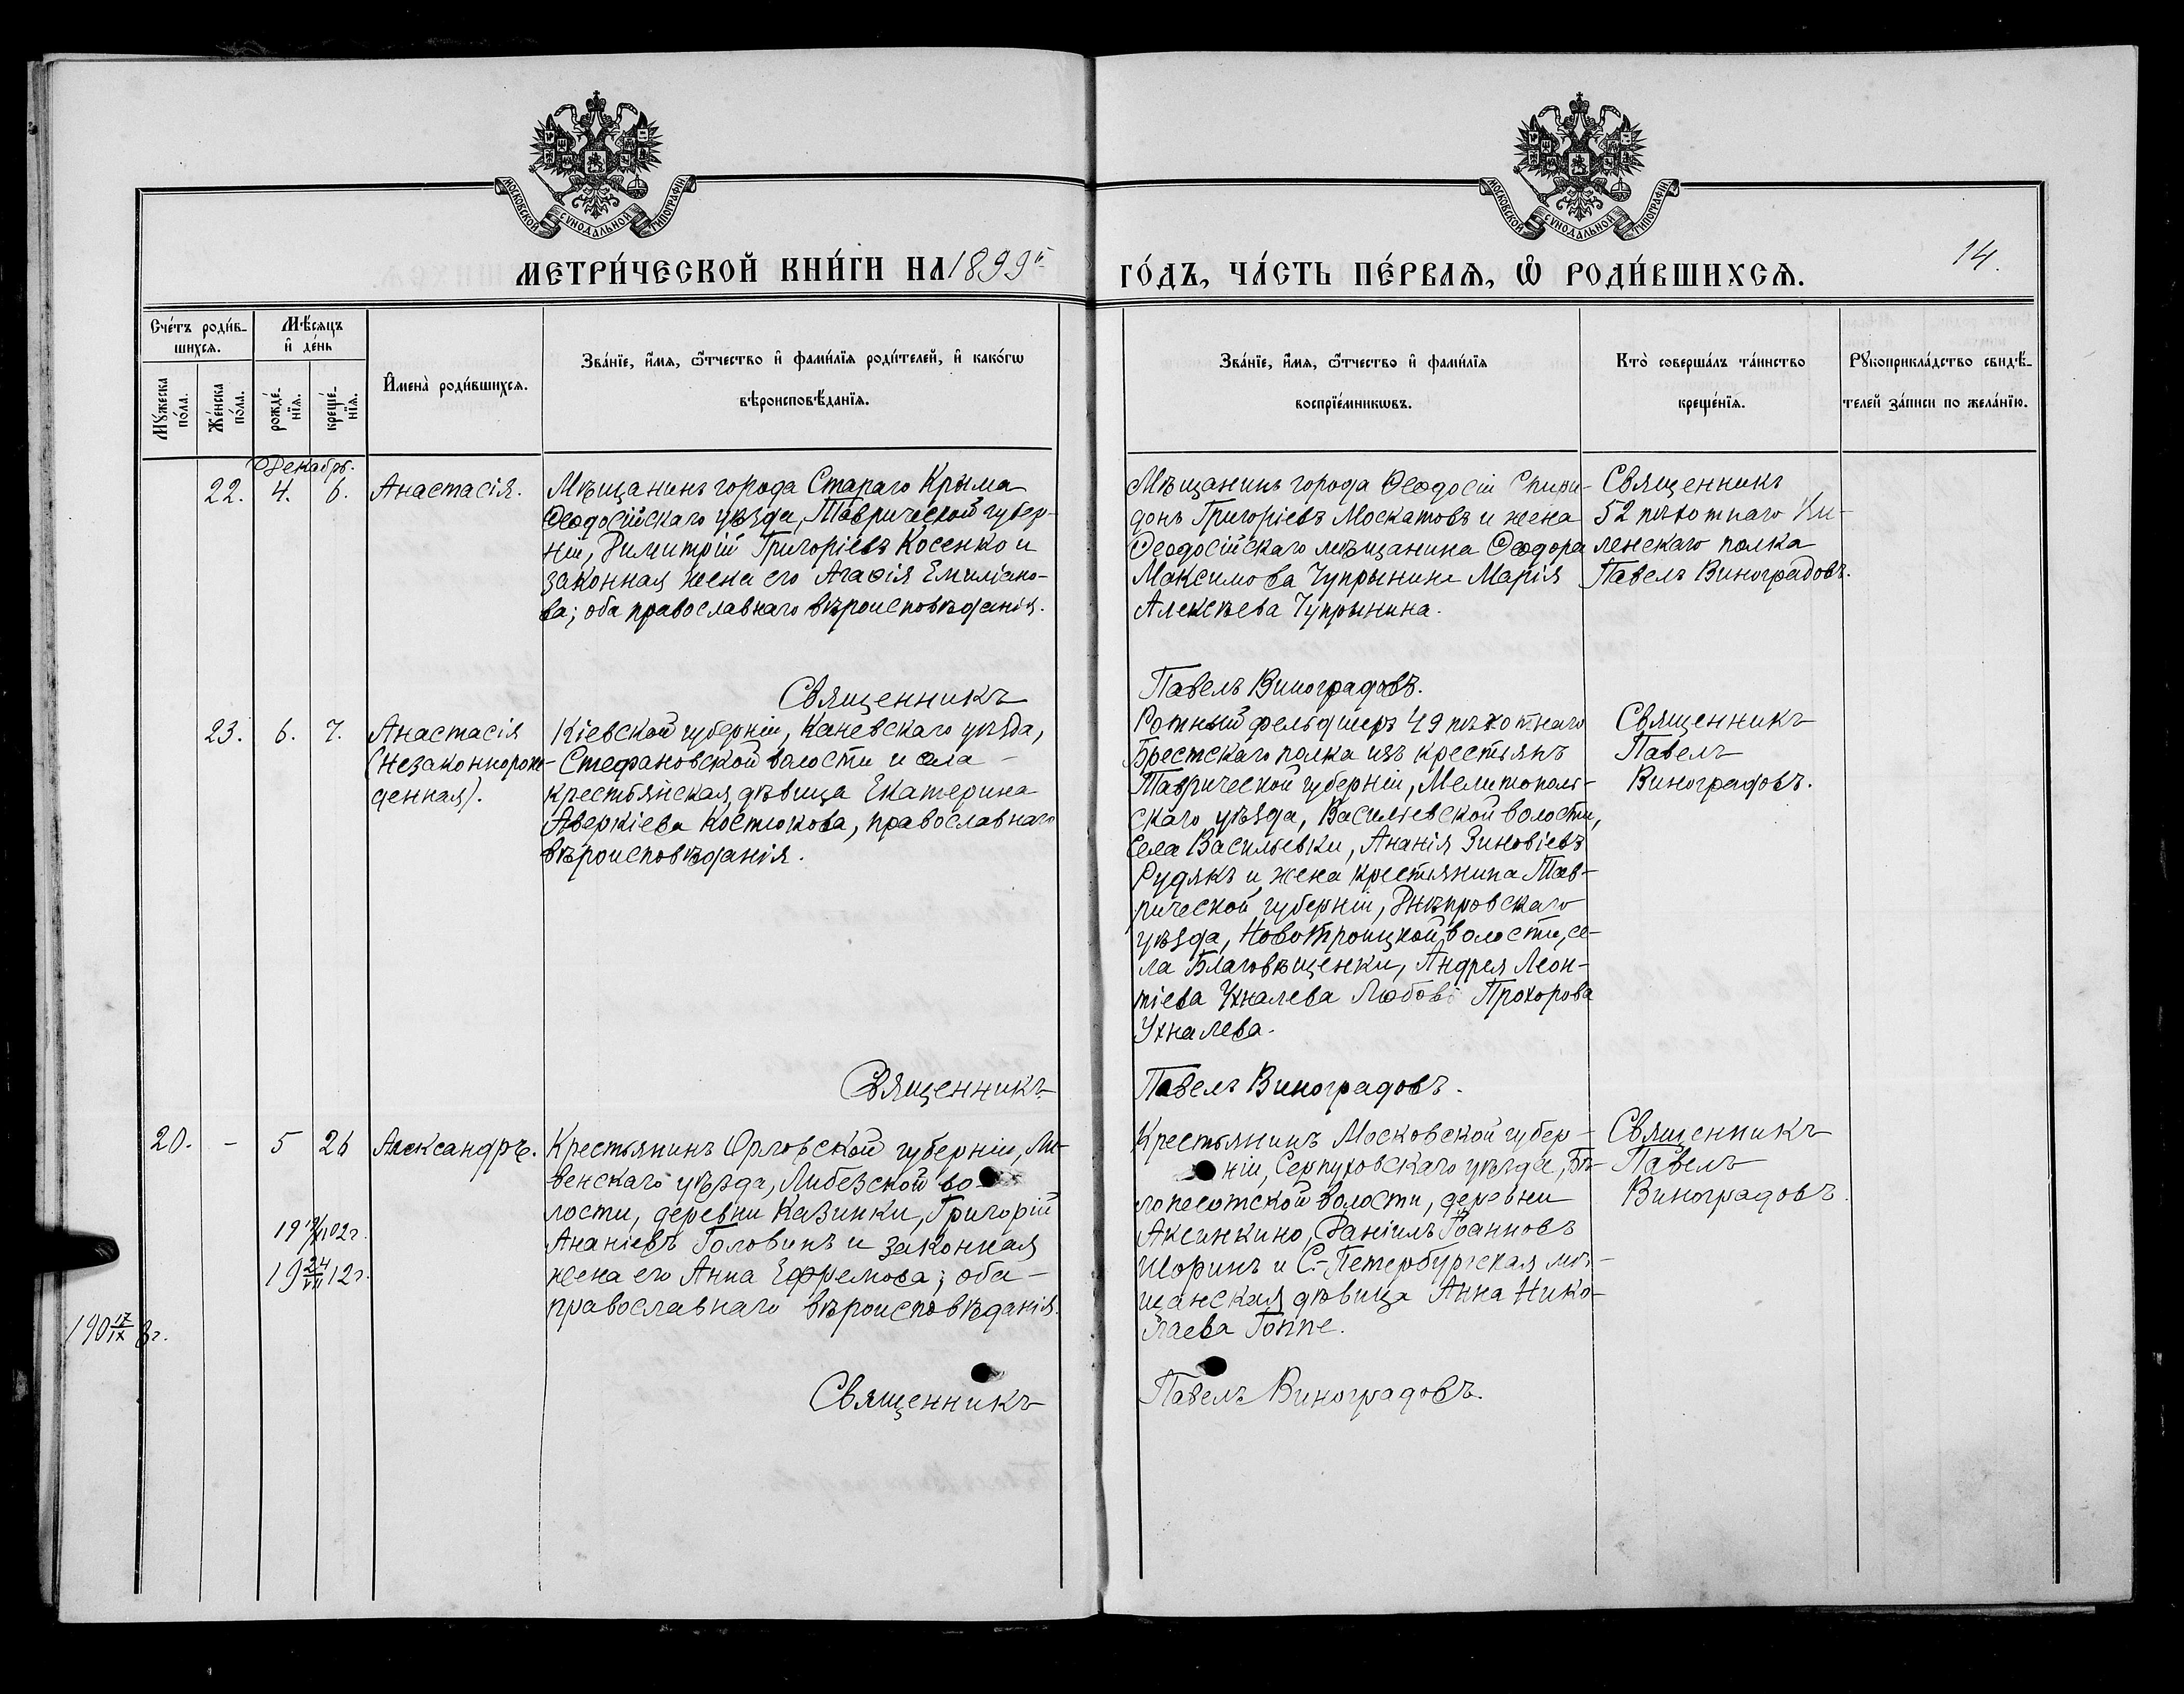 МОСКОВСКОЙ СѴНОДАЛЬНОЙ ТИПОГРАФІИ.
МОСКОВСКОЙ СѴНОДАЛЬНОЙ ТИПОГРАФІИ.
МЕТРИ́ЧЕСКОЙ КНИ́ГИ НА 1899й
ГО́ДЪ, ЧА́СТЬ ПЕ́РВАѦ, Ѡ҆ РОДИ́ВШИХСѦ.
14.
Сче́тъ роди́в-
шихсѧ.
Мѣ́сѧцъ
и҆ де́нь
Мꙋ́жеска
по́ла.
Же́нска
по́ла.
рожде́-
нїѧ.
креще́-
нїѧ.
И҆мена̀ роди́вшихсѧ.
Зва́нїе, и҆́мѧ, ѻ҆́тчество и҆ фами́лїѧ роди́телей, и҆ како́гѡ
вѣроисповѣ́данїѧ.
Зва́нїе, и҆́мѧ, ѻ҆́тчество и҆ фами́лїѧ
воспрїе́мникѡвъ.
Кто̀ соверша́лъ та́инство
креще́нїѧ.
Рꙋкоприкла́дство свидѣ́-
телей за́писи по жела́нїю.
Декабрь.
22. 4. 6. Анастасія.
Мѣщанинъ города Стараго Крыма
Ѳеодосійскаго уѣзда, Таврической губер-
ніи, Димитрій Григоріевъ Косенко и
законная жена его Агаѳія Емиліано-
ва; оба православнаго вѣроисповѣданія.
Священникъ
Мѣщанинъ города Ѳеодосіи Спири-
донъ Григоріевъ Москатовъ и жена
Ѳеодосійскаго мѣщанина Ѳеодора
Максимова Чупрынина Марія
Алексѣева Чупрынина.
Павелъ Виноградовъ.
Священникъ
52 пѣхотнаго Ви-
ленскаго полка
Павелъ Виноградовъ.
23. 6. 7. Анастасія
(незаконнорож-
денная).
Кіевской губерніи, Каневскаго уѣзда,
Стефановской волости и села
крестьянская дѣвица Екатерина
Аверкіева Костюкова, православнаго
вѣроисповѣданія.
Священникъ
Ротный фельдшеръ 49 пѣхотнаго
Брестскаго полка изъ крестьянъ
Таврической губерніи, Мелитополь-
скаго уѣзда, Васильевской волости,
села Васильевки, Ананія Зиновіевъ
Рудякъ и жена крестьянина Тав-
рической губерніи, Днѣпровскаго
уѣзда, Новотроицкой волости, се-
ла Благовѣщенки, Андрея Леон-
тіева Ухналева Любовь Прохорова
Ухналева.
Павелъ Виноградовъ.
Священникъ
Павелъ
Виноградовъ.
20. - 5 26 Александръ.
Крестьянинъ Орловской губерніи, Ли-
венскаго уѣзда, Либезской во-
лости, деревни Казинки, Григорій
Ананіевъ Головинъ и законная
жена его Анна Ефремова; оба
православнаго вѣроисповѣданія.
Священникъ
02г.
19 24/VII 12г.
190 17/IX 8г.
Крестьянинъ Московской губер-
ніи, Серпуховскаго уѣзда, Бѣ-
лопесотской волости, деревни
Аксинкино, Даніилъ Іоанновъ
Шоринъ и С.-Петербургская мѣ-
щанская дѣвица Анна Нико-
лаева Гоппе.
Павелъ Виноградовъ.
Священникъ
Павелъ
Виноградовъ.